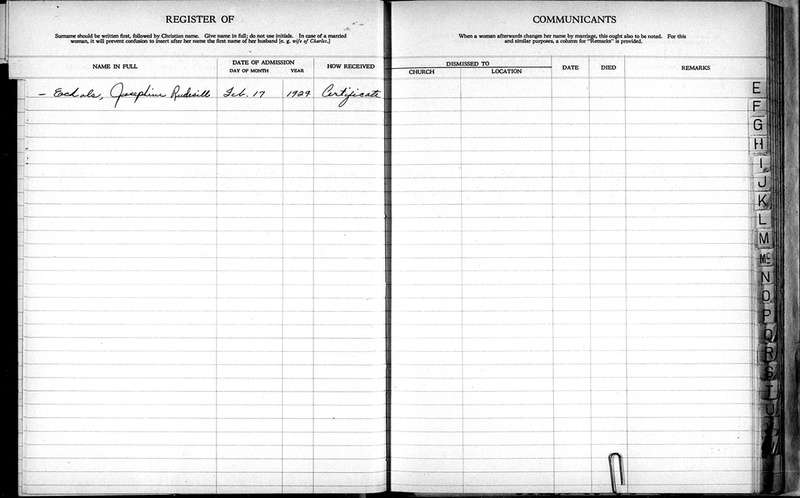 REGISTER OF
Surname should be written first, followed by Christian name. Give name in full; do not use initials. In case of a married
woman, it will prevent confusion to insert after her name the first name of her husband [e. g. wife of Charles.]
NAME IN FULL
DATE OF ADMISSION
DAY OF MONTH
YEAR
HOW RECEIVED
– Echols, Josephine Rudisill Feb. 17 1929 Certificate
COMMUNICANTS
When a woman afterwards changes her name by marriage, this ought also to be noted. For this
and similar purposes, a column for "Remarks" is provided.
DISMISSED TO
CHURCH
LOCATION
DATE
DIED
REMARKS
E
F
G
H
I
J
K
L
M
Mc
N
O
P
Q
R
S
T
U